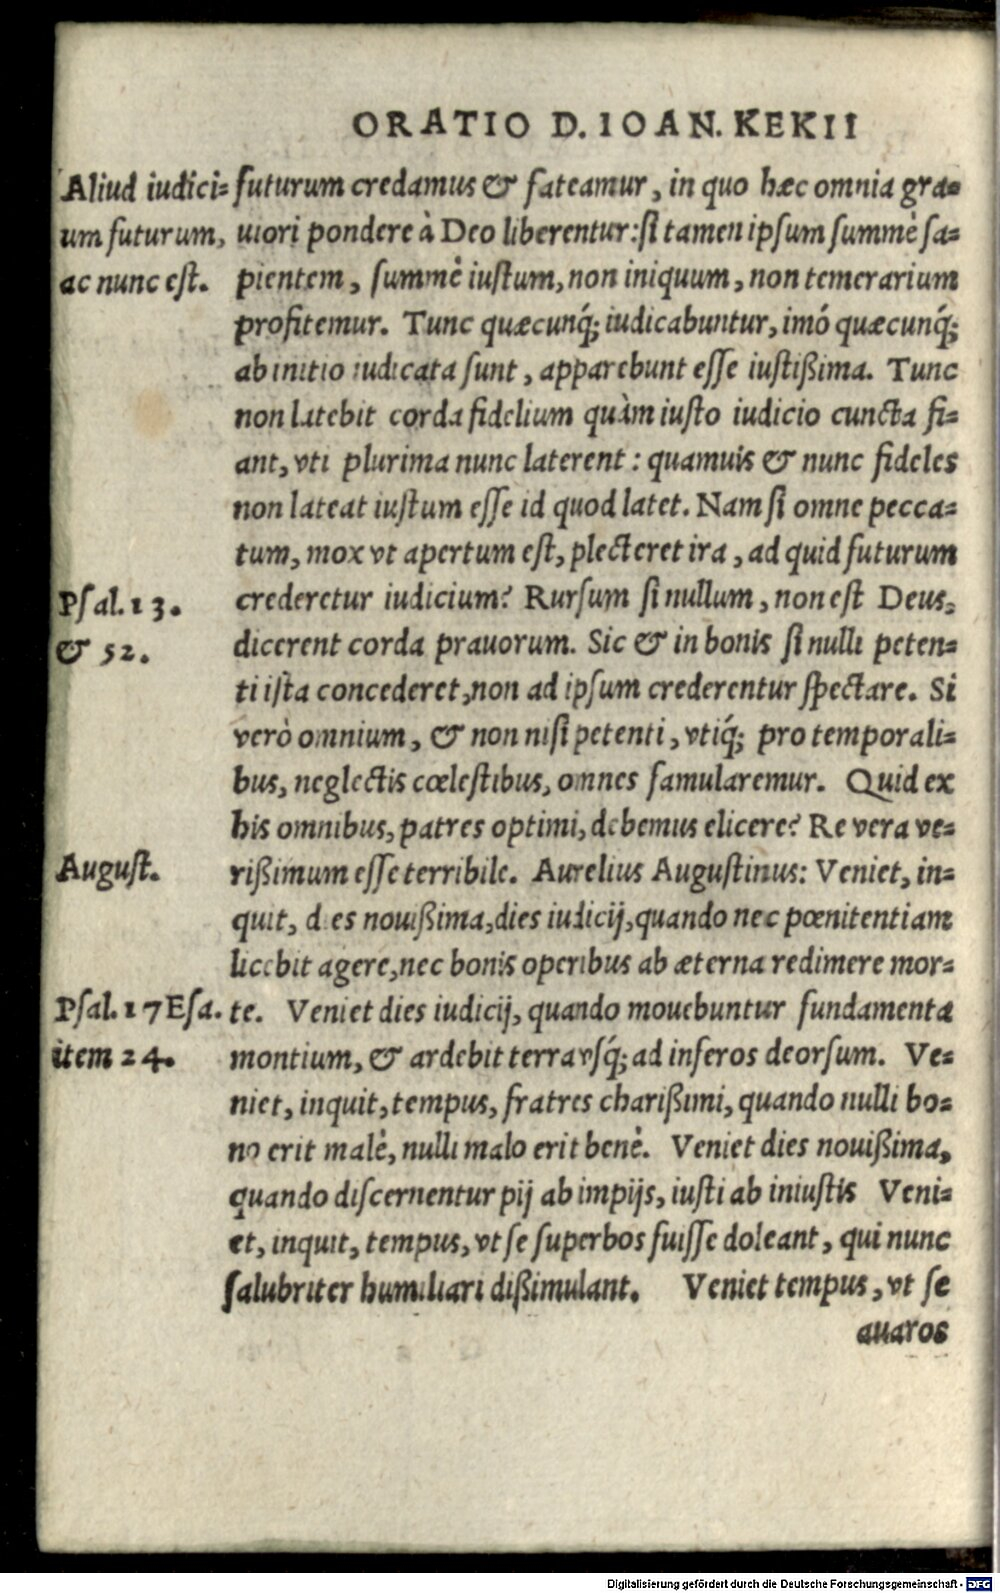 ORATIO D. IOAN. KEKII
Aliud iudici=
um futurum,
ac nunc est.
futurum credamus & fateamur, in quo hæc omnia gra=
uiori pondere à Deo liberentur: si tamen ipsum summè sa=
pientem, summè iustum, non iniquum, non temerarium
profitemur. Tunc quæcunq́; iudicabuntur, imó quæcunq́;
ab initio iudicata sunt, apparebunt esse iustißima. Tunc
non latebit corda fidelium quàm iusto iudicio cuncta fi=
ant, vti plurima nunc laterent: quamuis & nunc fideles
non lateat iustum esse id quod latet. Nam si omne pecca=
tum, mox vt apertum est, plecteret ira, ad quid futurum
Psal. 13.
& 52.
crederetur iudicium? Rursum si nullum, non est Deus,
dicerent corda prauorum. Sic & in bonis si nulli peten=
ti ista concederet, non ad ipsum crederentur spectare. Si
verò omnium, & non nisi petenti, vtiq́; pro temporali=
bus, neglectis cœlestibus, omnes famularemur. Quid ex
his omnibus, patres optimi, debemus elicere? Re vera ve=
August.
rißimum esse terribile. Aurelius Augustinus: Veniet, in=
quit, dies nouißima, dies iudicij, quando nec pœnitentiam
licebit agere, nec bonis operibus ab æterna redimere mor=
Psal. 17 Esa.
item 24.
te. Veniet dies iudicij, quando mouebuntur fundamenta
montium, & ardebit terra vsq́; ad inferos deorsum. Ve=
niet, inquit, tempus, fratres charißimi, quando nulli bo=
no erit malè, nulli malo erit benè. Veniet dies nouißima,
quando discernentur pij ab impijs, iusti ab iniustis Veni=
et, inquit, tempus, vt se superbos fuisse doleant, qui nunc
salubriter humiliari dißimulant. Veniet tempus, vt se
auaros
Digitalisierung gefördert durch die Deutsche Forschungsgemeinschaft - DFG